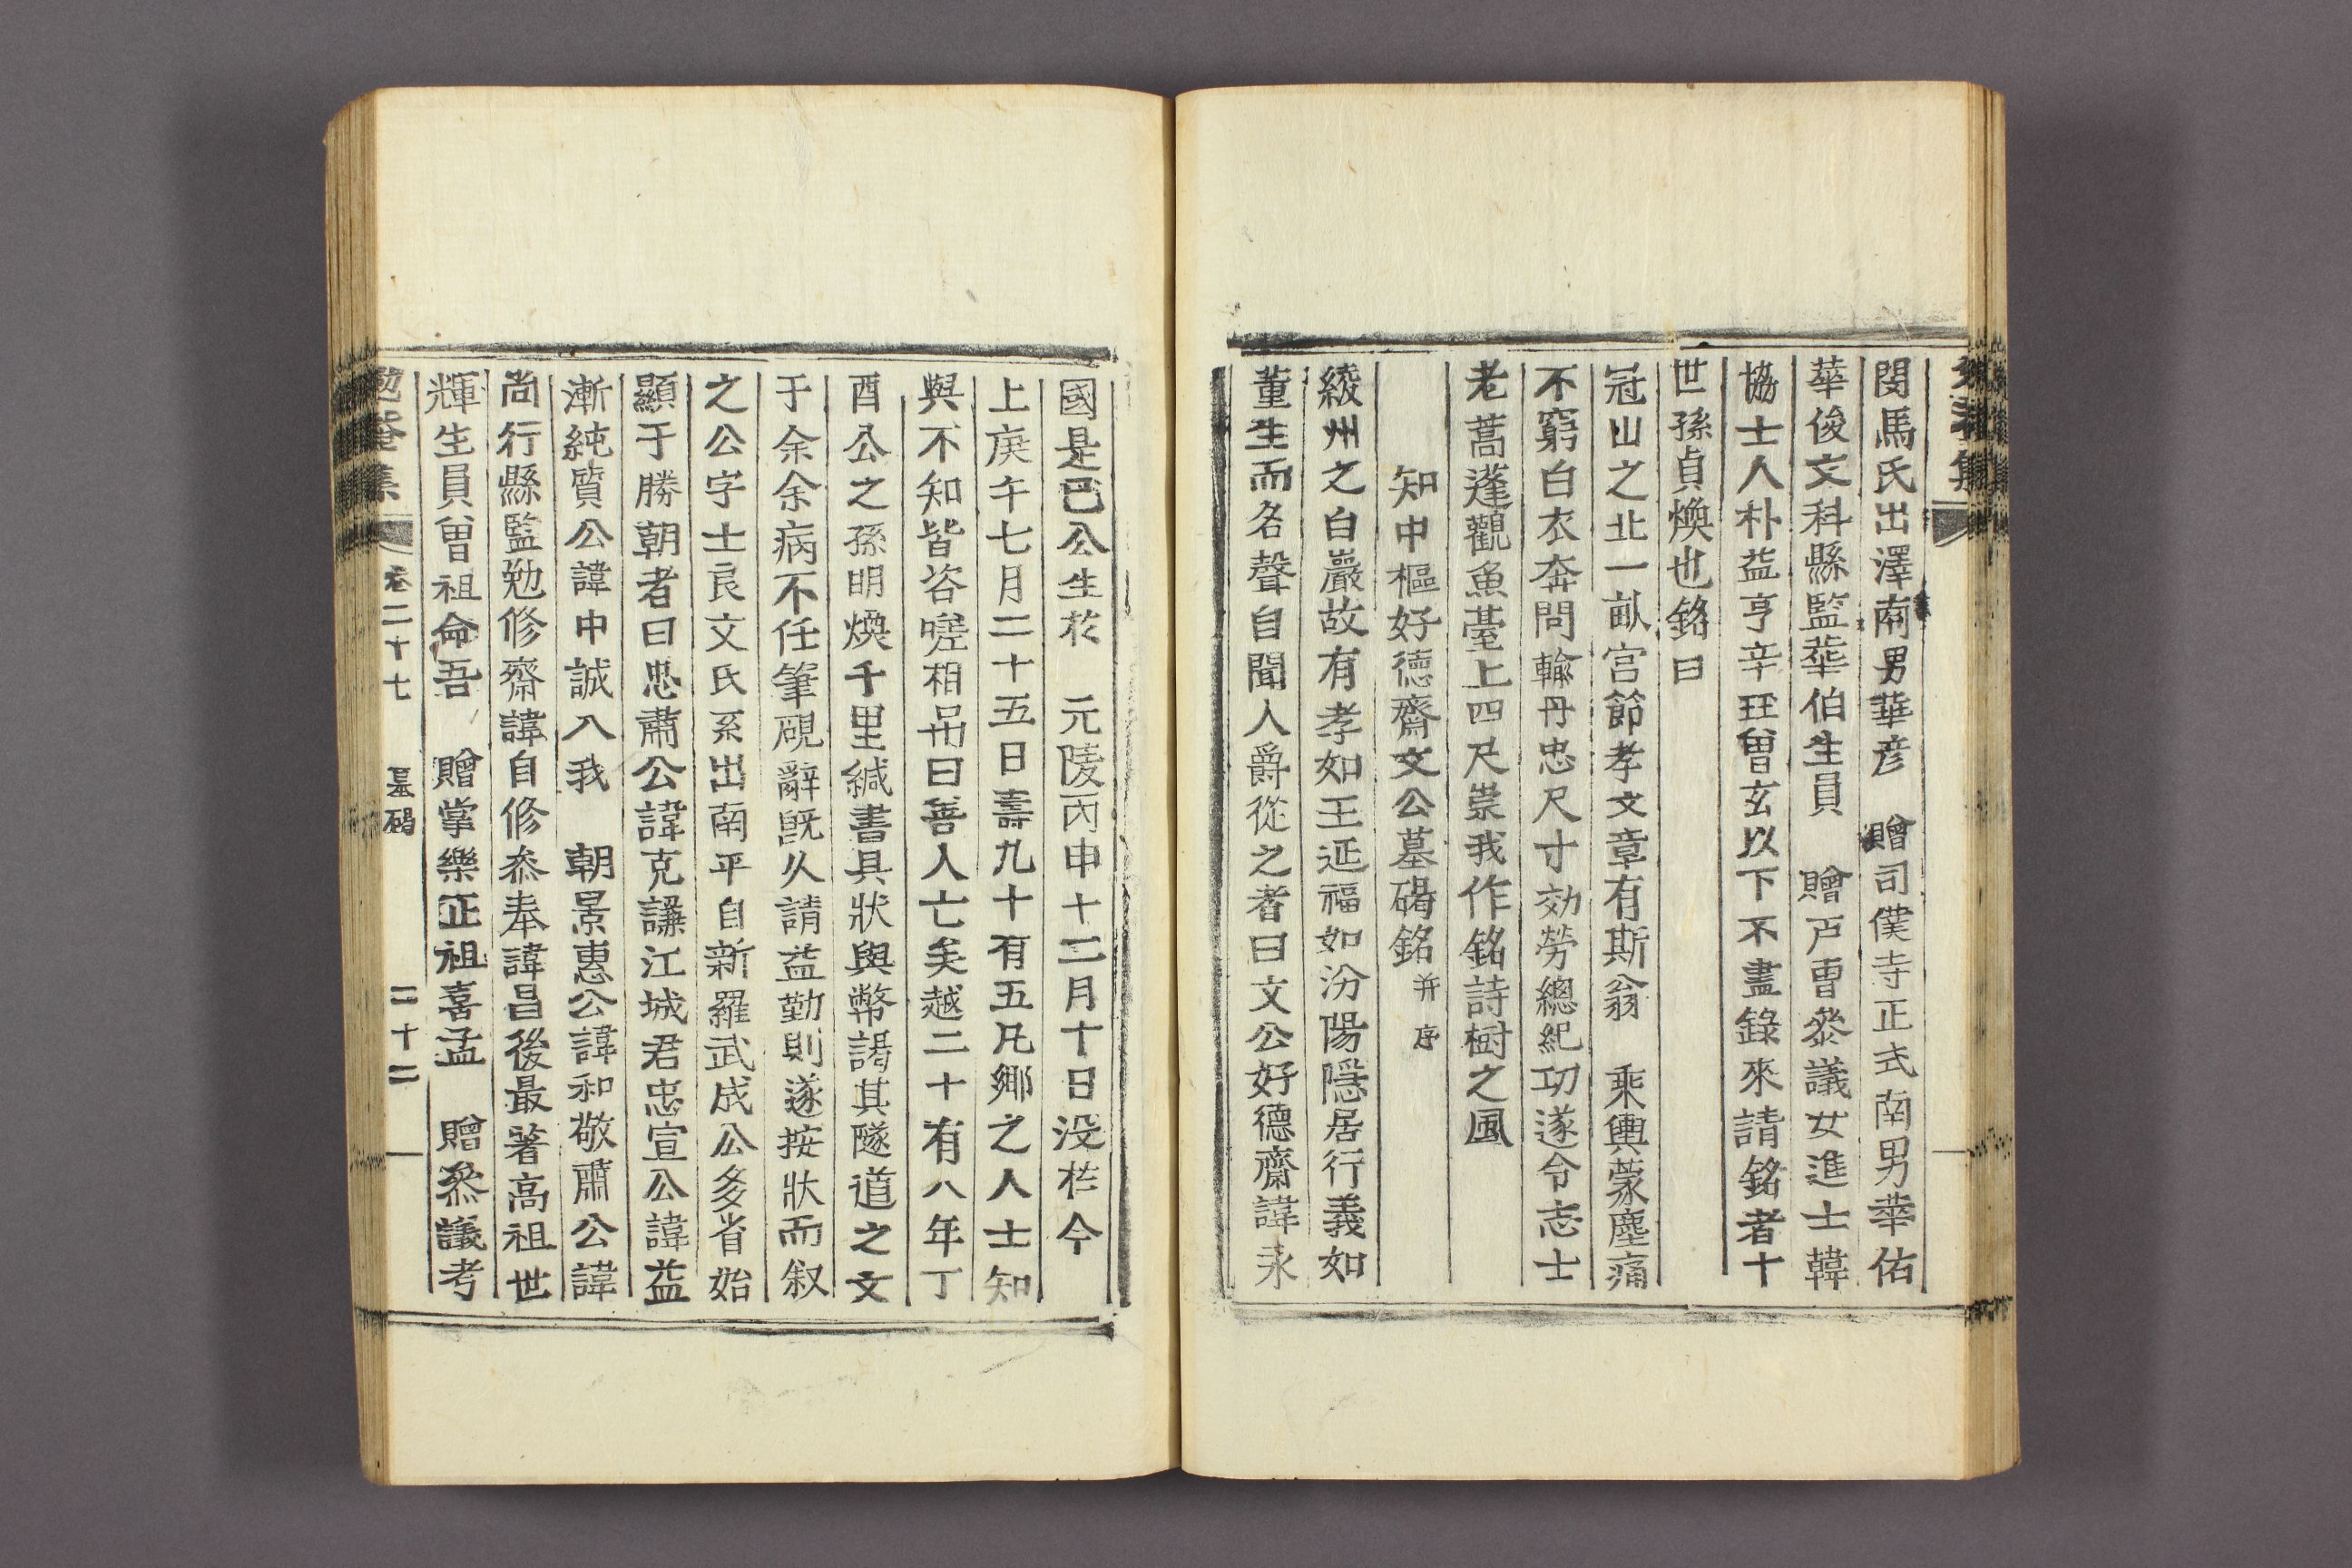 閔馬氏出澤南男華彦　贈司僕寺正式南男華佑
華俊文科縣監華伯生員　贈戸曺叅議女進士韓
協士人朴益亨辛玨曽玄以下不盡錄來請銘者十
世孫貞煥也銘曰
冠山之北一畝宫節孝文章有斯翁　乘輿蒙塵痛
不窮白衣奔問輸丹忠尺寸効勞總紀功遂令志士
老蒿蓬觀魚臺上四尺崇我作銘詩樹之風
知中樞好德齋文公墓碣銘 并序
綾州之白巖故有孝如王延福如汾陽隱居行義如
董生而名聲自聞人爵從之者曰文公好德齋諱永
國是已公生於　元陵丙申十二月十日没於今
上庚午七月二十五日壽九十有五凡鄉之人士知
與不知皆咨嗟相吊曰善人亡矣越二十有八年丁
酉公之孫明煥千里緘書具狀與幣謁其隧道之文
于余余病不任筆硯辭旣久請益勤則遂按狀而叙
之公字士良文氏系出南平自新羅武成公多省始
顯于勝朝者曰忠肅公諱克謙江城君忠宣公諱益
漸純質公諱中誠入我　朝景惠公諱和敬肅公諱
尚行縣監勉修齋諱自修叅奉諱昌後最著高祖世
輝生員曽祖命吾　贈掌樂正祖喜孟　贈叅議考
勉菴集　卷二十七　墓碣　二十二